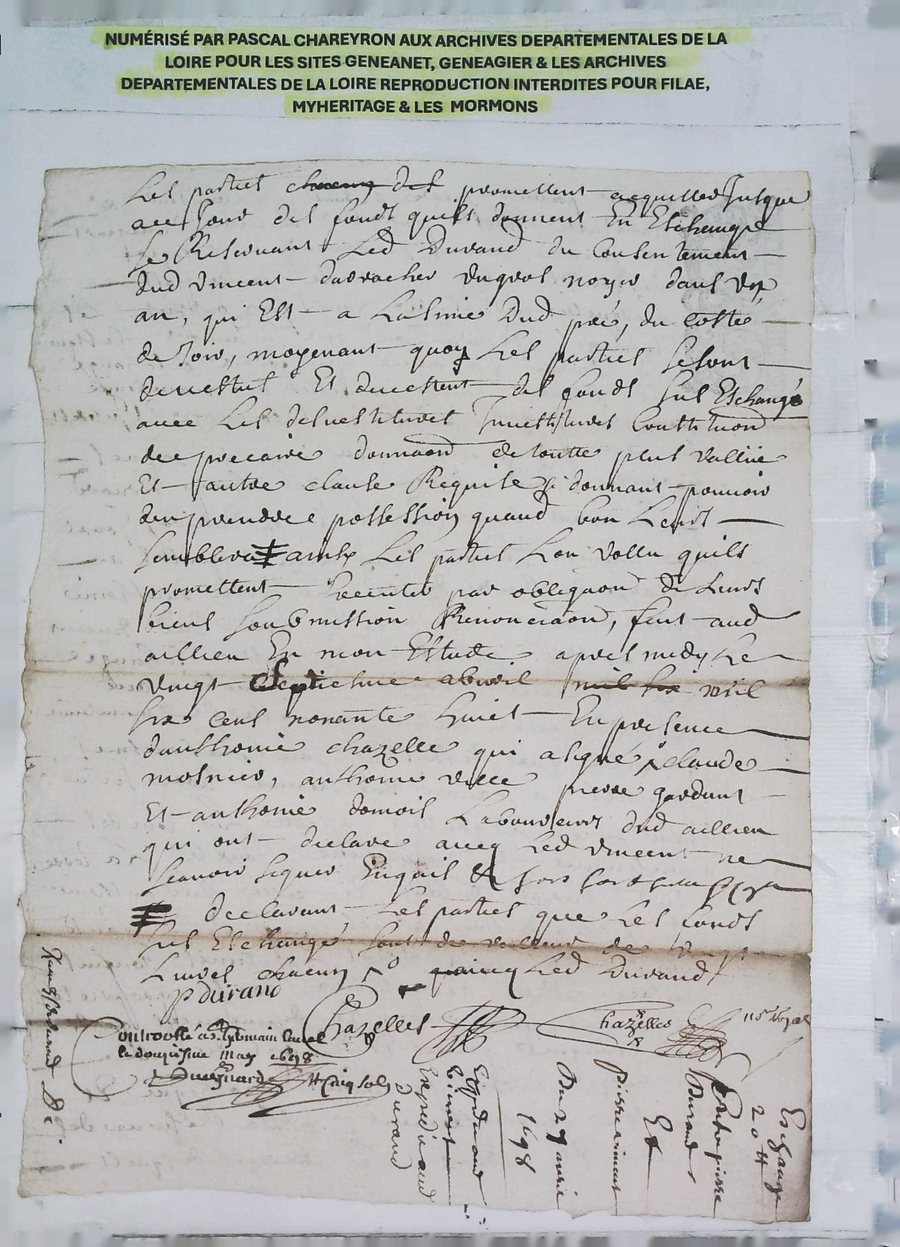 NUMÉRISÉ PAR PASCAL CHAREYRON AUX ARCHIVES DEPARTEMENTALES DE LA
LOIRE POUR LES SITES GENEANET, GENEAGIER & LES ARCHIVES
DEPARTEMENTALES DE LA LOIRE REPRODUCTION INTERDITES POUR FILAE,
MYHERITAGE & LES MORMONS
Les parties des promettent acquitter Jusque
a ce Jour des fonds quils donnent En Eschange
se Reservant Led Durand du Consentement
dud vincent darracher un gros noyer dans un
an, qui Est a La sime Dud pré, du costé
de soir, moyenant quoy Les parties se sont
devestus Et devestent des fonds sus Eschangé
avec Les desvestitures Investitures Constituon
de precaire donnaon de toutte plus vallue
Et autre clause Requise donnant pouvoir
den prendre possession quand bon Leurs
semblera ainsy Les parties Lon vollu quils
promettent Executer par obligaon de Leurs
biens soubmission Renonciaon, fait aud
aillieu En mon Estude apres midy Le
vingt septiesme abvril mil
six cens nonante huict En presence
danthonie chazelle qui a signé claude
mosnier, anthonie pierre gardant
Et anthonie domois Laboureurs dud aillieu
qui ont declare avecq Led vincent ne
scavoir signer Enquis &
declarant Les parties que Les fonds
sus Eschangé sont de valleur de
Livres chacun Led Durand
P durand
Chazelles
Chazelles
Controllé a St Germain Laval
le douziesme may 1698
Eschange
20 #
Entre pierre
Durand
Et
pierre vincent
Du 27 avril
1698
Expedié aud
vincent
Expedié aud
Durand